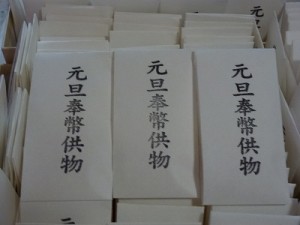 元旦奉幣供物
元旦奉幣供物
元旦奉幣供物
元